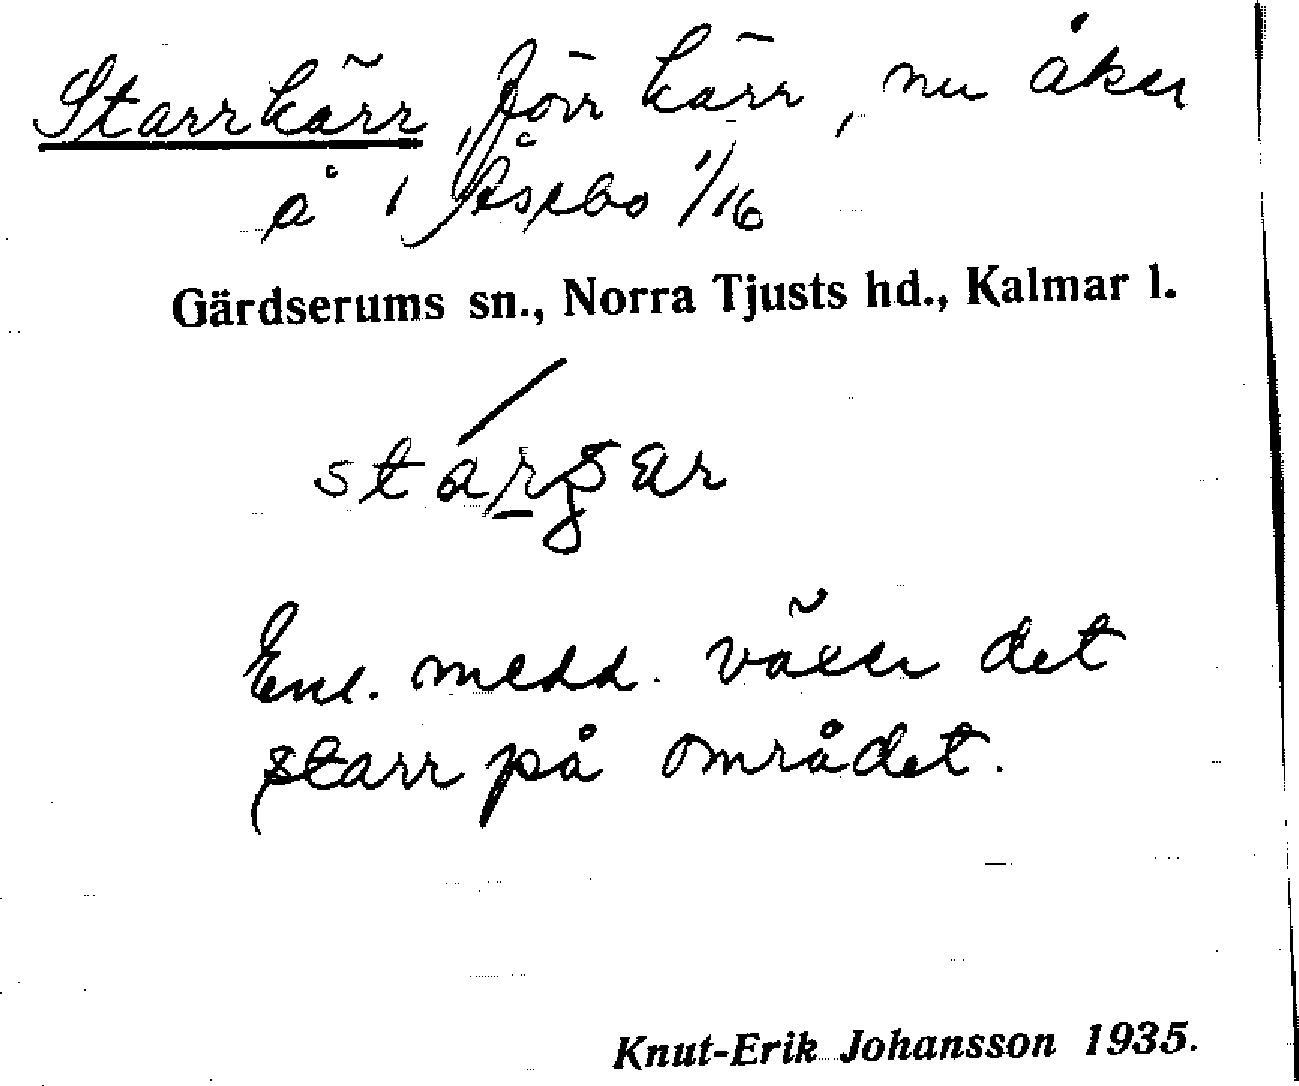 Starrkärr, förr kärr, nu åker
å 1 Åsebo 1/16
Gärdserums sn., Norra Tjusts hd., Kalmar l.
Enl. medd. växer det
starr på området.
Knut-Erik Johansson 1935.